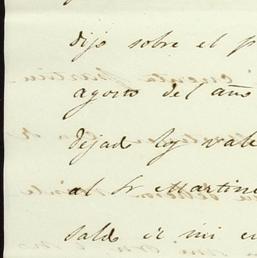 dijo sobre el p
agosto del año
dejado hoy vale
al Sr Martine
saldo à mi